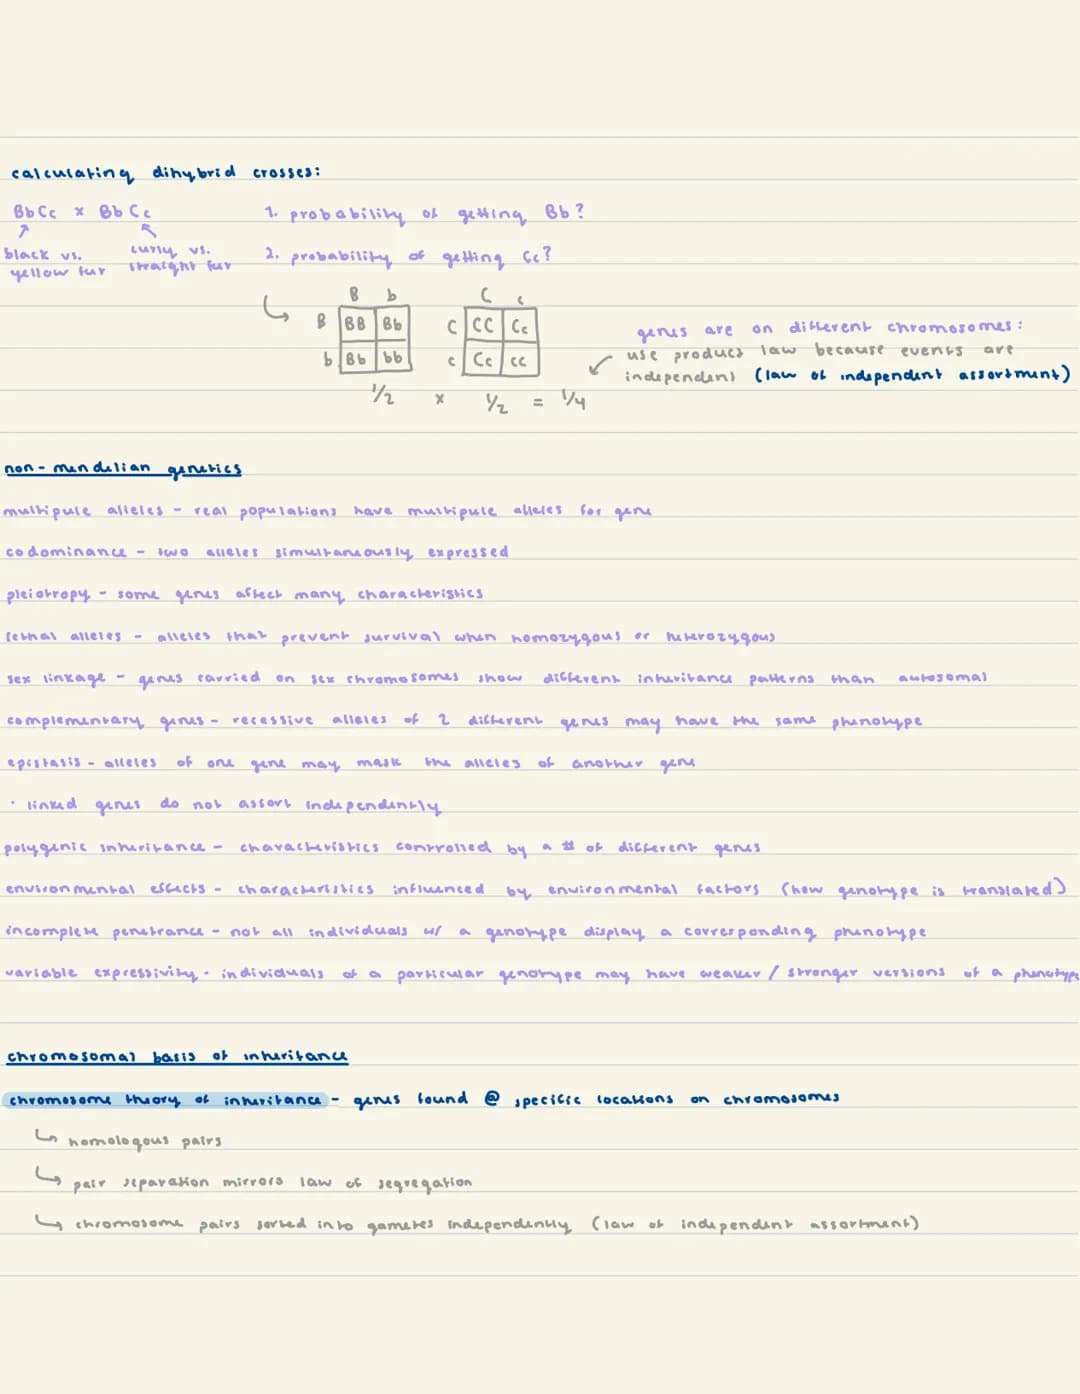 calculating dihybrid crosses:
BbCc x BbCc
black vs.
yellow fur
curly vs.
straight fur
1. probability of getting Bb?
2. probability of getting Cc?
B b
B BB Bb
b Bb bb
C c
C CC Cc
c Cc cc
1/2 x 1/2 = 1/4
genes are on different chromosomes:
use product law because events are
independent (law of independent assortment)
non-mendelian genetics
multipule alleles - real populations have multipule alleles for gene
codominance - two alleles simultaneously expressed
pleiotropy - some genes affect many characteristics
lethal alleles - alleles that prevent survival when homozygous or heterozygous
sex linkage - genes carried on sex chromosomes show different inheritance patterns than autosomal
complementary genes - recessive alleles of 2 different genes may have the same phenotype
epistasis - alleles of one gene may mask the alleles of another gene
· linked genes do not assort independently
polygenic inheritance - characteristics controlled by a # of different genes
environmental effects - characteristics influenced by environmental factors (how genotype is translated)
incomplete penetrance - not all individuals w/ a genotype display a corresponding phenotype
variable expressivity - individuals of a particular genotype may have weaker / stronger versions of a phenotype
chromosomal basis of inheritance
chromosome theory of inheritance - genes found @ specific locations on chromosomes
↳ homologous pairs
↳ pair separation mirrors law of segregation
↳ chromosome pairs sorted into gametes independently (law of independent assortment)